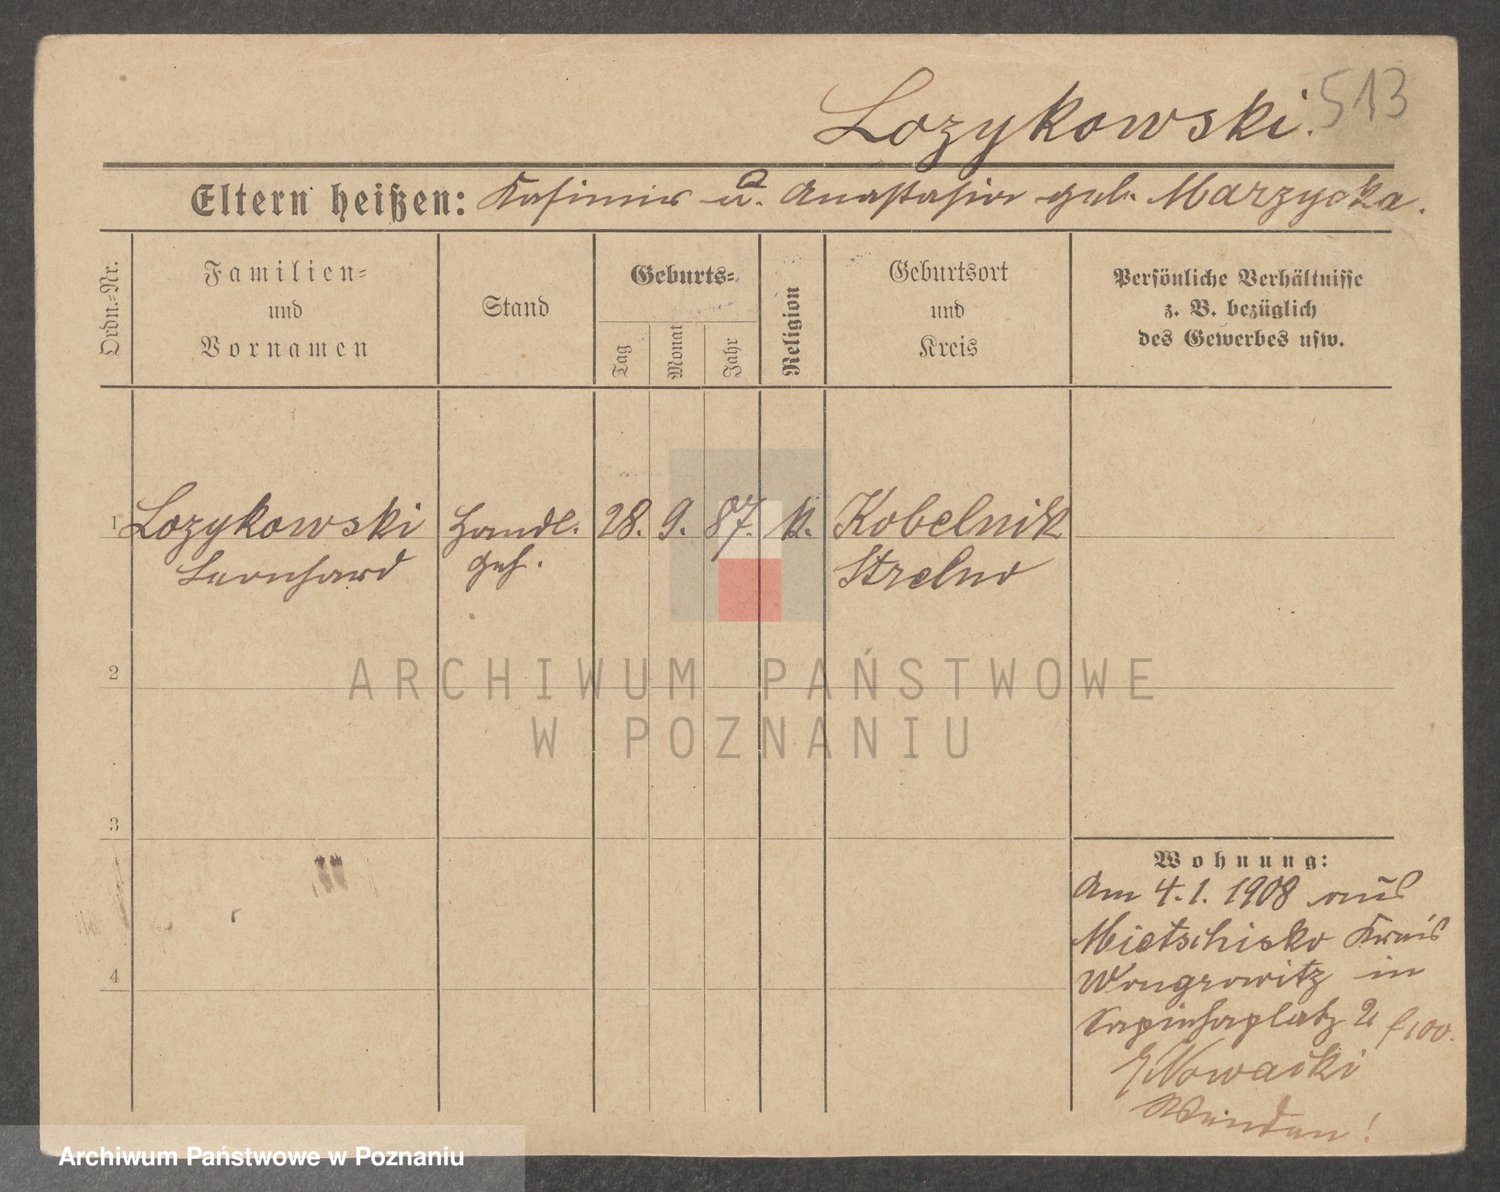 Lozykowski. 513
Eltern heißen: Kasimir u. Anastasia geb. Marzycka.
Ordn.-Nr.
Familien-
und
Vornamen
Stand
Geburts-
Tag
Monat
Jahr
Religion
Geburtsort
und
Kreis
Persönliche Verhältnisse
z. B. bezüglich
des Gewerbes usw.
1 Lozykowski Handl. 28. 9. 87. k. Kobelnik
Leonhard geh. Strelno
ARCHIWUM PAŃSTWOWE
W POZNANIU
2
3
4
Wohnung:
Am 4.1. 1908 aus
Mietschisko Kreis
Wongrowitz in
Sapiehaplatz 2
Nowacki
Archiwum Państwowe w Poznaniu